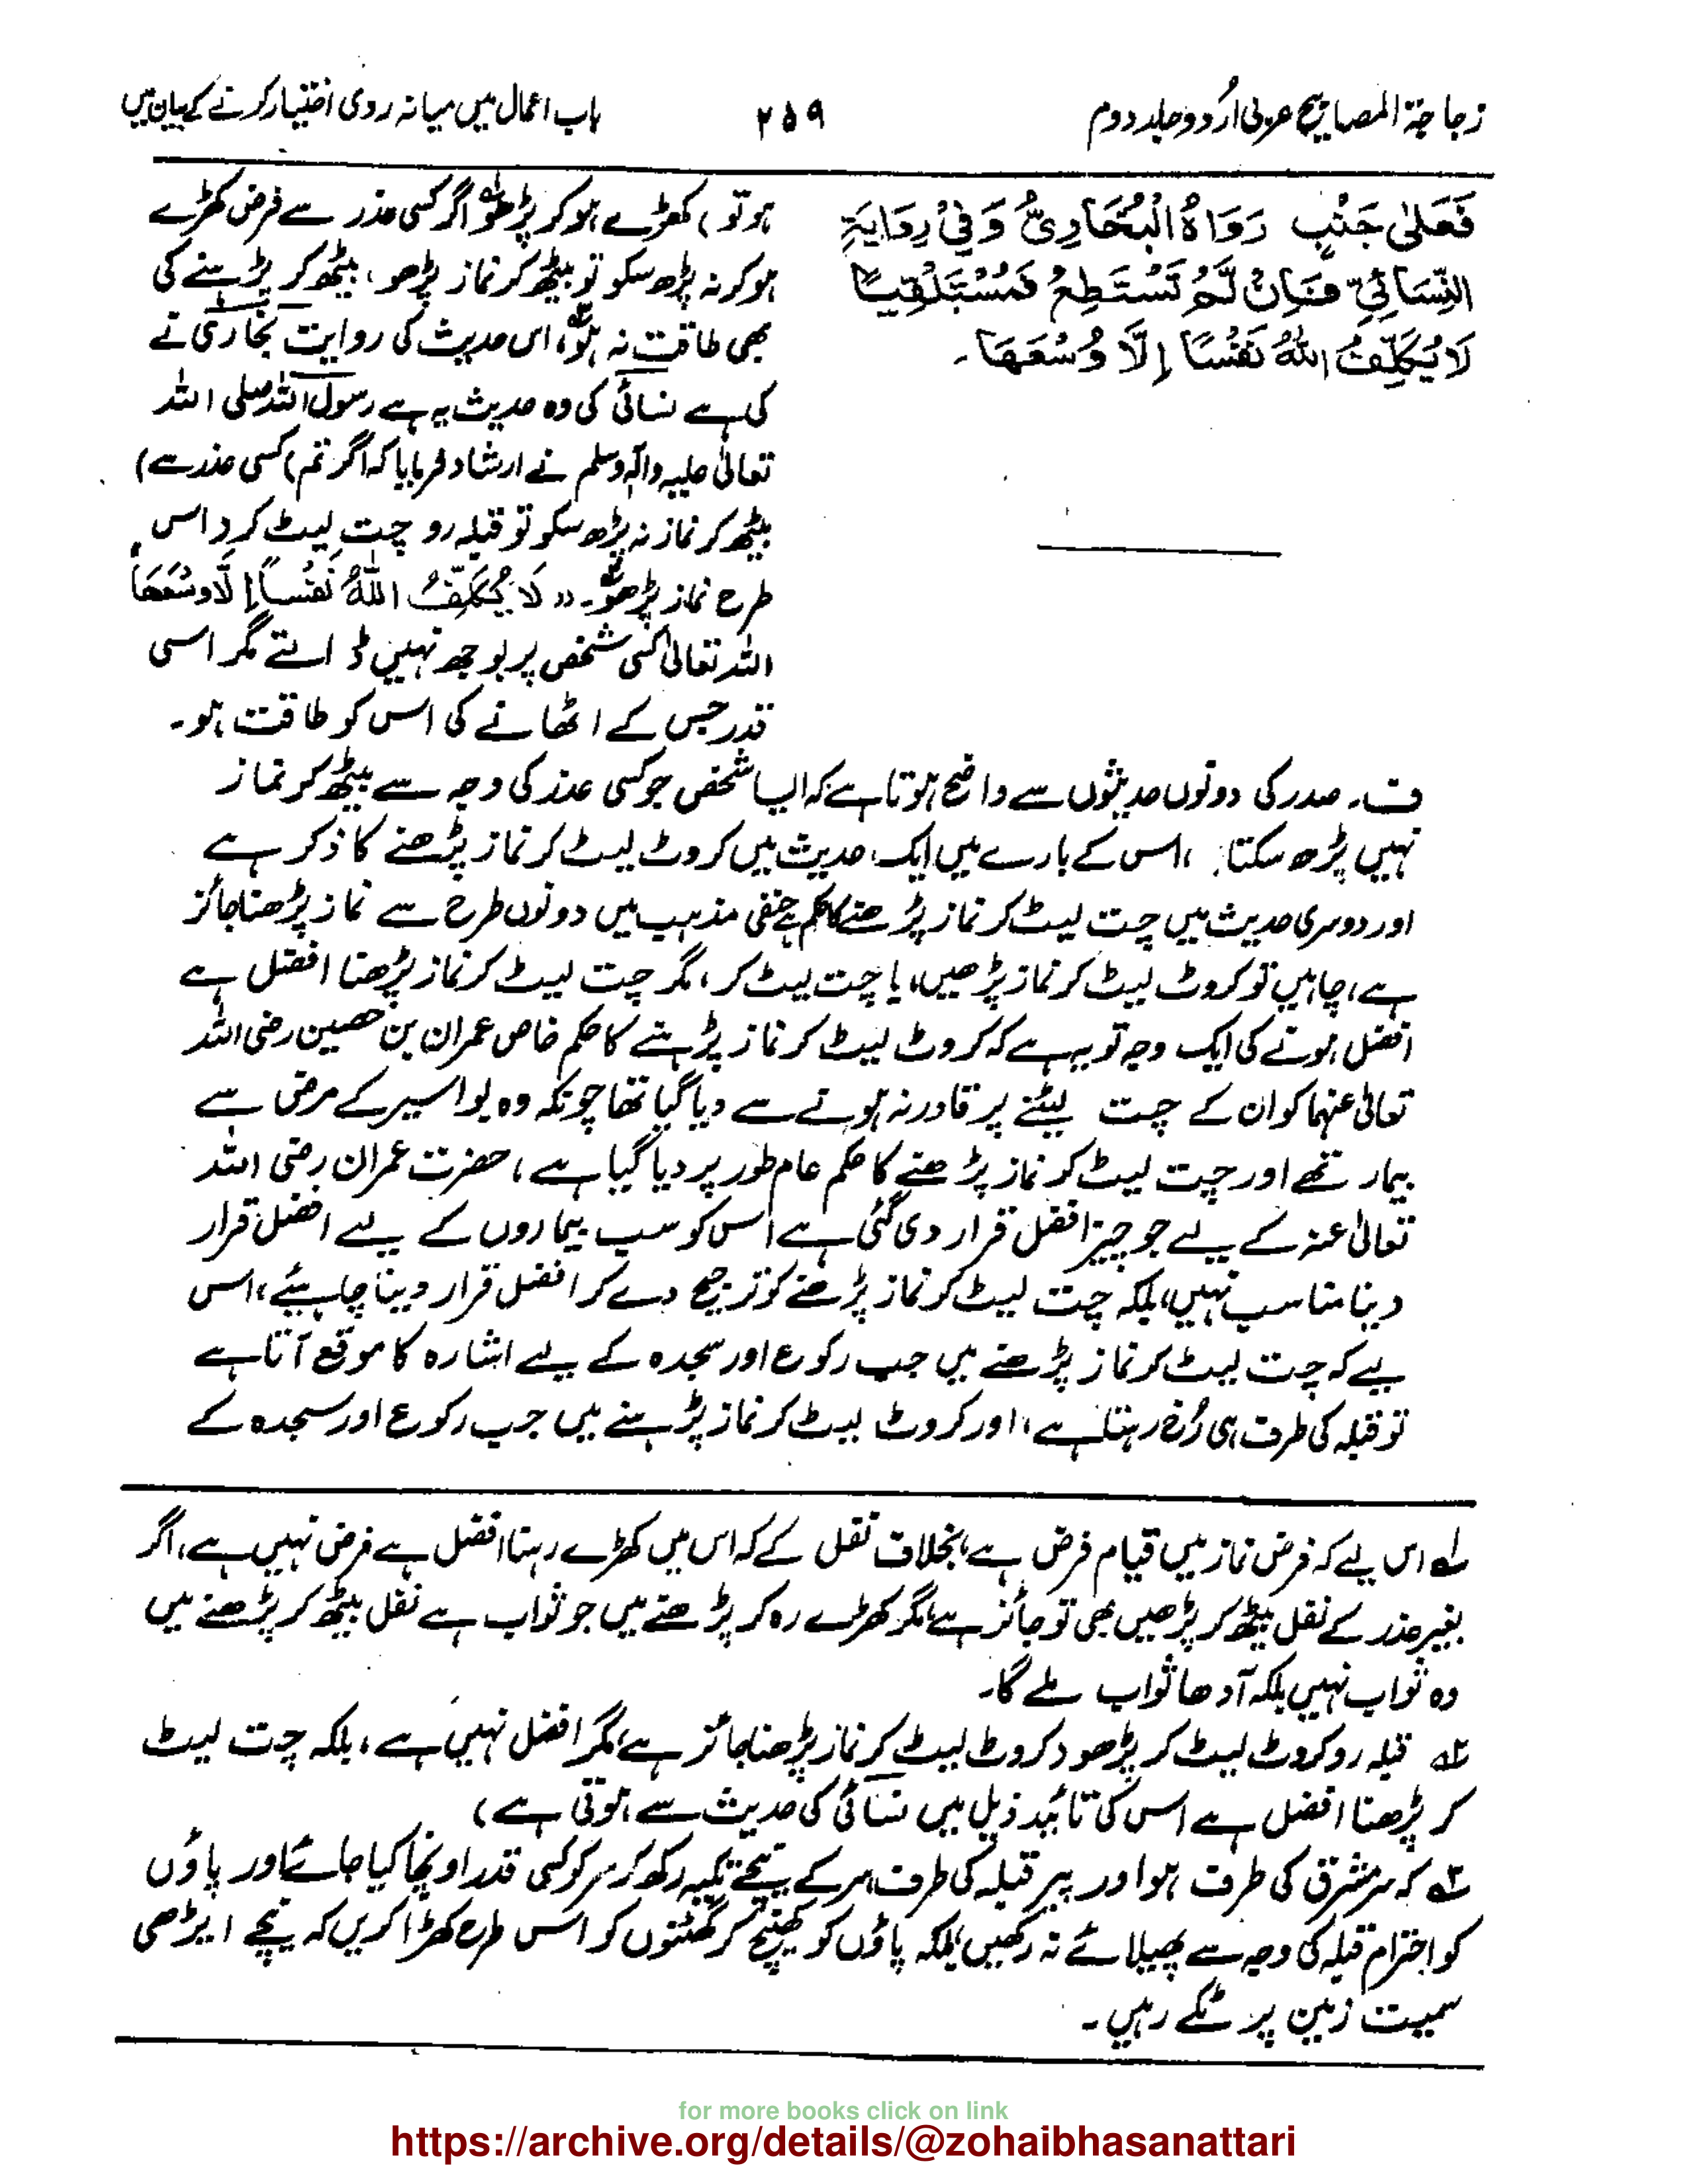 زجاجۃ المصابیح عربی اُردو جلد دوم
۲۵۹
باب اعمال میں میانہ روی اختیار کرنے کے بیان میں
فَعَلٰی جَنْبٍ رَوَاهُ الْبُخَارِیُّ وَفِیْ رِوَایَةِ
النِّسَائِیِّ فَاِنْ لَّمْ تَسْتَطِعْ فَمُسْتَلْقِیًا
لَا یُکَلِّفُ اللّٰهُ نَفْسًا اِلَّا وُسْعَهَا۔
ہو تو) کھڑے ہو کر پڑھو اگر کسی عذر سے فرض کھڑے
ہو کر نہ پڑھ سکو تو بیٹھ کر نماز پڑھو، بیٹھ کر پڑہنے کی
بھی طاقت نہ ہو، اس حدیث کی روایت بخاری نے
کی ہے نسائی کی وہ حدیث یہ ہے رسول اللہ صلی اللہ
تعالیٰ علیہ واٰلہٖ وسلم نے ارشاد فرمایا کہ اگر تم (کسی عذر سے)
بیٹھ کر نماز نہ پڑھ سکو تو قبلہ رو چت لیٹ کر (اس
طرح نماز پڑھو۔ "لَا یُکَلِّفُ اللّٰهُ نَفْسًا اِلَّا وُسْعَهَا
اللہ تعالیٰ کسی شخص پر بوجھ نہیں ڈالتے مگر اسی
قدر جس کے اٹھانے کی اس کو طاقت ہو۔
ف۔ صدر کی دونوں حدیثوں سے واضح ہوتا ہے کہ ایسا شخص جو کسی عذر کی وجہ سے بیٹھ کر نماز
نہیں پڑھ سکتا، اس کے بارے میں ایک حدیث میں کروٹ لیٹ کر نماز پڑھنے کا ذکر ہے
اور دوسری حدیث میں چت لیٹ کر نماز پڑھنے کا حکم ہے حنفی مذہب میں دونوں طرح سے نماز پڑھنا جائز
ہے، چاہیں تو کروٹ لیٹ کر نماز پڑھیں، یا چت لیٹ کر، مگر چت لیٹ کر نماز پڑھنا افضل ہے
افضل ہونے کی ایک وجہ تو یہ ہے کہ کروٹ لیٹ کر نماز پڑہنے کا حکم خاص عمران بن حصین رضی اللہ
تعالیٰ عنہما کو ان کے چت لیٹنے پر قادر نہ ہونے سے دیا گیا تھا چونکہ وہ بواسیر کے مرض سے
بیمار تھے اور چت لیٹ کر نماز پڑھنے کا حکم عام طور پر دیا گیا ہے، حضرت عمران رضی اللہ
تعالیٰ عنہ کے لیے جو چیز افضل قرار دی گئی ہے اس کو سب بیماروں کے لیے افضل قرار
دینا مناسب نہیں، بلکہ چت لیٹ کر نماز پڑھنے کو ترجیح دے کر افضل قرار دینا چاہیئے، اس
لیے کہ چت لیٹ کر نماز پڑھنے میں جب رکوع اور سجدہ کے لیے اشارہ کا موقع آتا ہے
تو قبلہ کی طرف ہی رُخ رہتا ہے، اور کروٹ لیٹ کر نماز پڑہنے میں جب رکوع اور سجدہ کے
لہ اس لیے کہ فرض نماز میں قیام فرض ہے، بخلاف نفل کے کہ اس میں کھڑے رہنا افضل ہے فرض نہیں ہے، اگر
بغیر عذر کے نفل بیٹھ کر پڑھیں بھی تو جائز ہے، مگر کھڑے رہ کر پڑھنے میں جو ثواب ہے نفل بیٹھ کر پڑھنے میں
وہ ثواب نہیں بلکہ آدھا ثواب ملے گا۔
۲ہ قبلہ رو کروٹ لیٹ کر پڑھو (کروٹ لیٹ کر نماز پڑھنا جائز ہے، مگر افضل نہیں ہے، بلکہ چت لیٹ
کر پڑھنا افضل ہے اس کی تائید ذیل میں نسائی کی حدیث سے ہوتی ہے)
۳ہ کہ سر مشرق کی طرف ہو اور پیر قبلہ کی طرف، سر کے نیچے تکیہ رکھ کر سر کو کسی قدر اونچا کیا جائے اور پاؤں
کو احترام قبلہ کی وجہ سے پھیلائے نہ رکھیں، بلکہ پاؤں کو کھینچ کر گھٹنوں کو اس طرح کھڑا کریں کہ نیچے ایڑھی
سمیت زمین پر ٹکے رہیں۔
for more books click on link
https://archive.org/details/@zohaibhasanattari